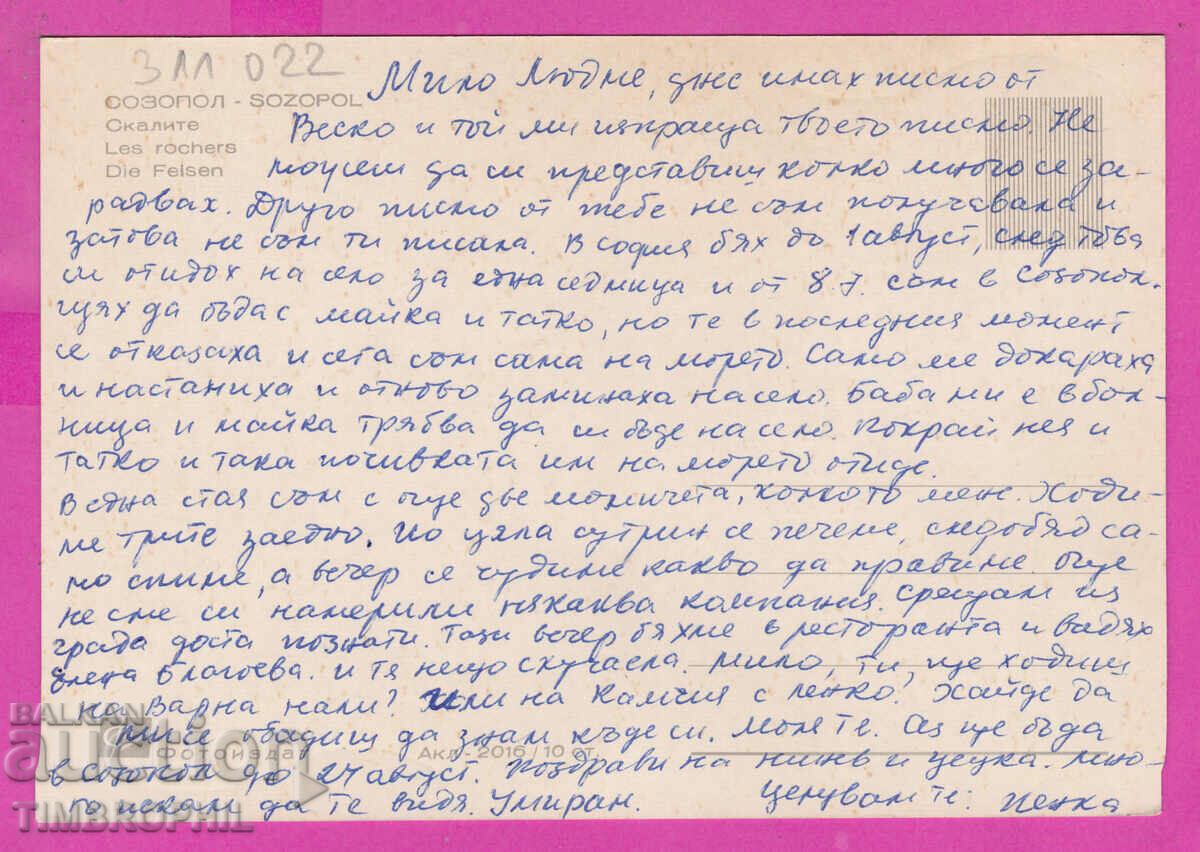 311 022
СОЗОПОЛ - SOZOPOL
Скалите
Les rochers
Die Felsen
Мило Людме, днес имах писмо от
Веско и той ми изпраща твоето писмо. Не
можеш да си представиш колко много се за-
радвах. Друго писмо от тебе не съм получавала и
затова не съм ти писала. В София бях до 1 август, след това
си отидох на село за една седмица и от 8.7. съм в Созопол.
Щях да бъда с майка и татко, но те в последния момент
се отказаха и сега съм сама на морето. Само ме докараха
и настаниха и отново заминаха на село. Баба ми е в бол-
ница и майка трябва да си бъде на село. Покрай нея и
татко и така почивката им на морето отиде.
В една стая съм с още две момичета, колкото мен. Ходи-
ме трите заедно. По цяла сутрин се печеме, следобяд са-
мо спиме, а вечер се чудиме какво да правиме. Още
не сме си намерили някаква компания. Срещам из
града доста познати. Тази вечер бяхме в ресторанта и видях
Елена Благоева. И тя нещо скучаела. Мило, ти ще ходиш
на Варна нали? Или на Камчия с Ленко? Хайде да
ми се обадиш да знам къде си. Моля те. Аз ще бъда
в Созопол до 24 август. Поздрави на нинь и Цецка. Мно-
го искам да те видя. Умирам.
Целувам те: Пенка
Фотоиздат
Акл - 2016 / 10 ст.
BALKAN
auction
TIMBROPHIL